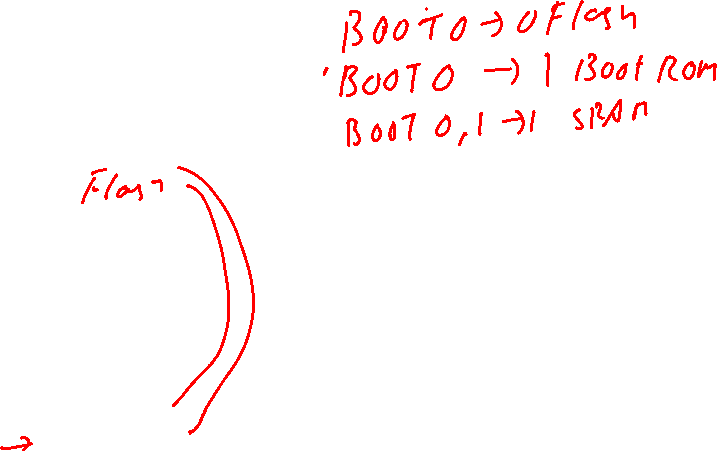 BOOT0 → 0 Flash
BOOT0 → 1 Boot Rom
BOOT 0,1 → 1 SRAM
Flash